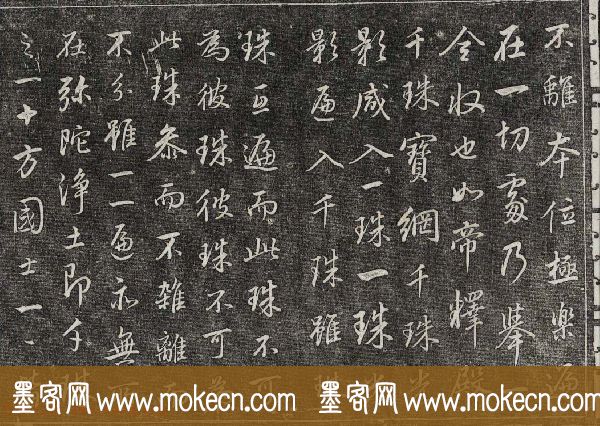 不離本位極樂遍
在一切處乃舉一
全收也如帝釋殿
千珠寶網千珠光
影咸入一珠一珠
影遍入千珠雖
珠互遍而此珠不可
為彼珠彼珠不可
此珠參而不雜離
不分雖一一遍亦無
在弥陀淨土即千珠
之一十方國土一一
墨客网 www.mokecn.com 墨客网 www.mokecn.com